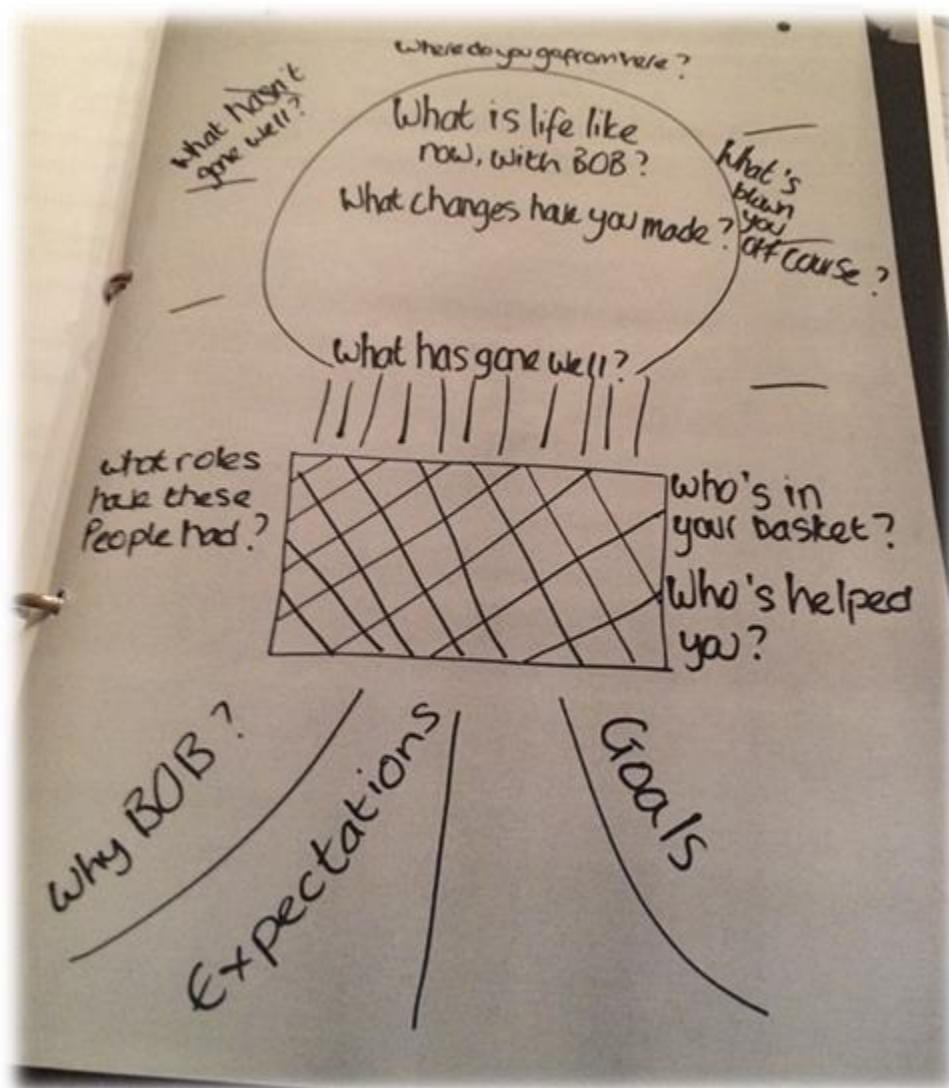 Where do you go from here?
What hasn't
gone well?
What is life like
now, with BOB?
What changes have you made?
What's
blown
you
off course?
What has gone well?
what roles
have these
People had?
who's in
your basket?
Who's helped
you?
Why BOB?
Expectations
Goals